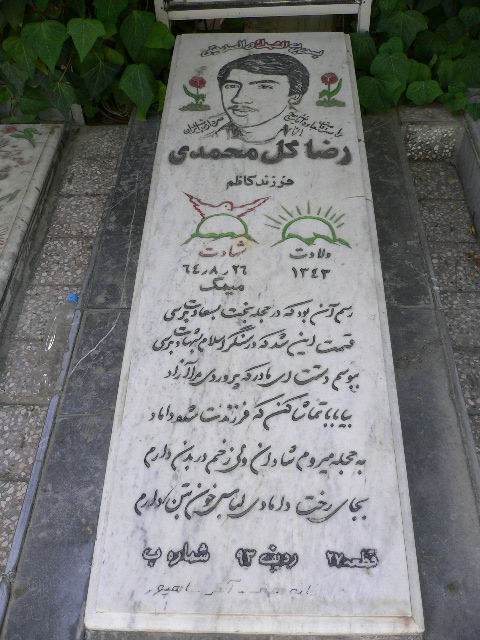 رضا گل محمدی
فرزند کاظم
ولادت
۱۳۴۳
شهادت
۶۴٫۸٫۲۶
میمک
رسم آن بود که در حجله بخت بسعادت برسی
قسمت این شد که در سنگر اسلام بشهادت برسی
ببوسم دستت ای مادر که پروردی مرا آزاد
بیا بابا تماشا کن که فرزندت شده داماد
به حجله میروم شادان ولی زخم در بدن دارم
بجای رخت دامادی لباس خون بتن دارم
قطعه ۲۷ ردیف ۹۳ شماره ب